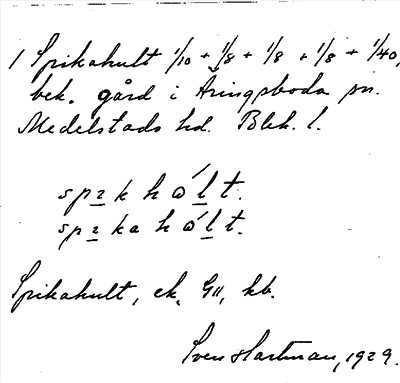 1 Spikahult 1/10 + 1/8 + 1/8 + 1/8 + 1/40,
bek. gård i Aringsboda sn.
Medelstads hd. Blek. l.
spɩk hώlt.
spɩka hώlt.
Spikahult, ek, GII, kb.
Sven Hartman, 1929.